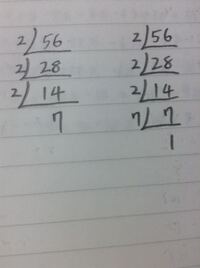 2 56 2 56
2 28 2 28
2 14 2 14
7 7 7
1